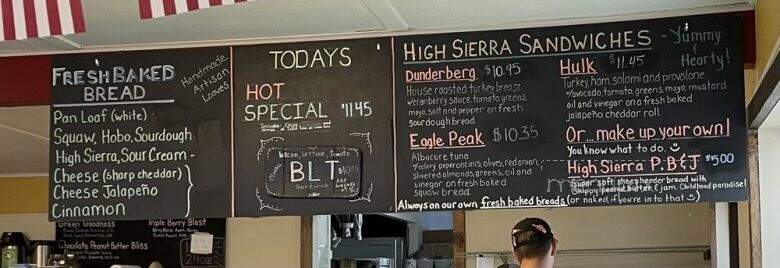 FRESH BAKED
BREAD
Handmade
Artisan
Loaves
Pan Loaf (white)
Squaw, Hobo, Sourdough
High Sierra, Sour Cream
Cheese (sharp cheddar)
Cheese Jalapeño
Cinnamon
TODAYS
HOT
SPECIAL $11.45
bacon, Lettuce, Tomato
BLT
Sandwich
HIGH SIERRA SANDWICHES
Yummy
& Hearty!
Dunderberg $10.95
House roasted turkey breast
w/cranberry sauce, tomato, greens,
mayo, salt and pepper on fresh
sourdough bread.
Eagle Peak $10.35
Albacore tuna
w/celery, peperoncinis, olives, red onion,
slivered almonds, greens, oil and
vinegar on fresh baked
squaw bread
Hulk $11.45
Turkey, ham, salami and provolone
w/avocado, tomato, greens, mayo, mustard
oil and vinegar on a fresh baked
jalapeño cheddar roll.
Or... make up your own!
You know what to do.
High Sierra P.B & J $5.00
Super soft sheepherder bread with
Skippy peanut butter & jam. Childhood paradise!
Always on our own fresh baked breads (or naked, if you're in to that)
Green Goodness
Triple Berry Blast
Chocolate Peanut Butter Bliss
24oz